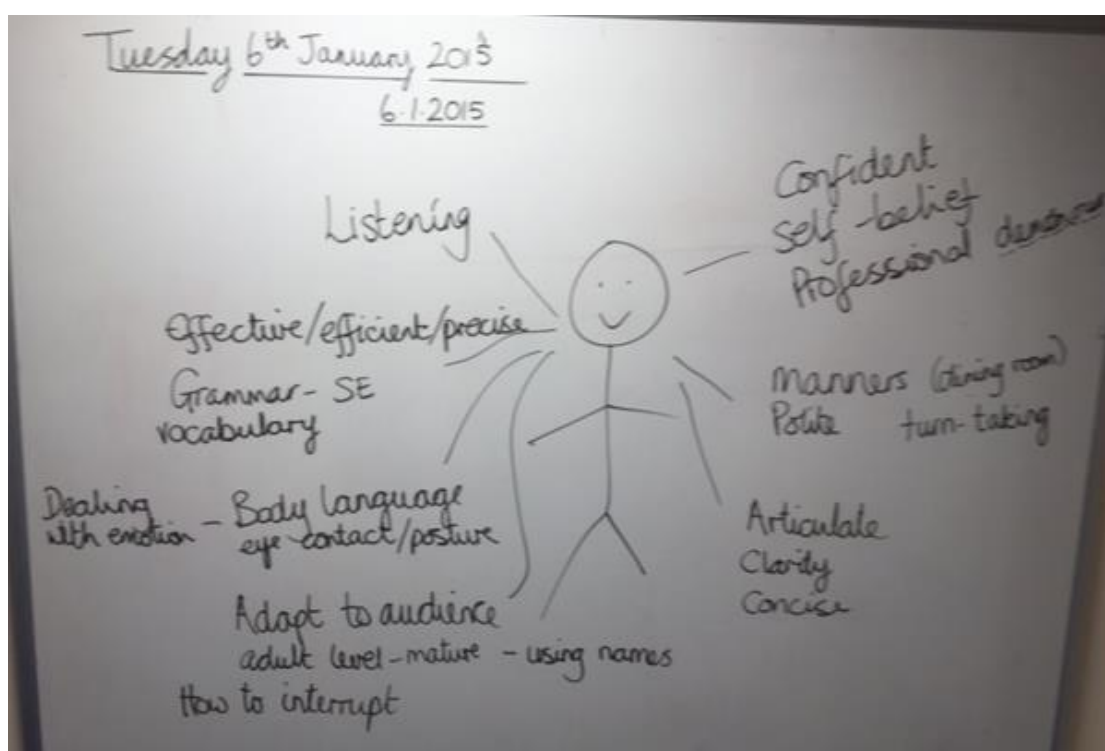 Tuesday 6th January 2015
6.1.2015
Listening
Effective/efficient/precise
Grammar - SE
vocabulary
Dealing
with emotion - Body language
eye contact/posture
Adapt to audience
adult level - mature - using names
How to interrupt
Confident
self-belief
Professional
Manners (dining room)
Polite turn-taking
Articulate
Clarity
Concise